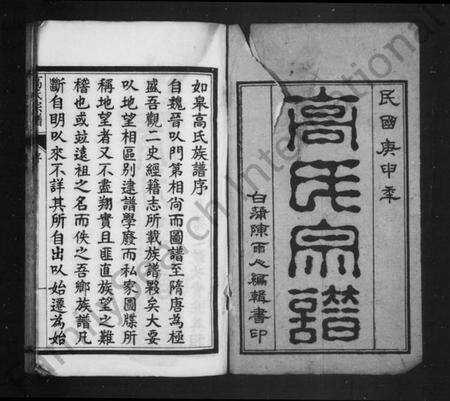 民國庚申年
高氏宗譜
白蒲陳雨心編輯書印
如皋高氏族譜序
自魏晉以門第相尚而圖譜至隋唐為極
盛吾觀二史經籍志所載族譜夥矣大要
以地望相區別逮譜學廢而私家圖牒所
稱地望者又不盡翔實且匪直族望之難
稽也或竝遠祖之名而佚之吾鄉族譜凡
斷自明以來不詳其所自出以始遷為始